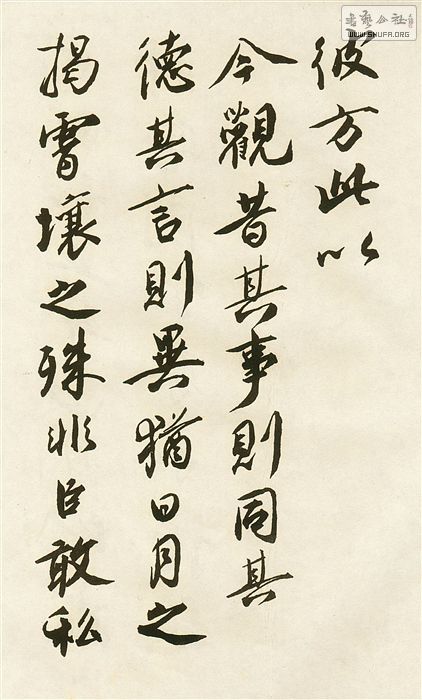 彼方此以
今觀昔其事則同其
德其言則異猶日月之
揭霄壤之殊非臣敢私
WWW.SHUFA.ORG